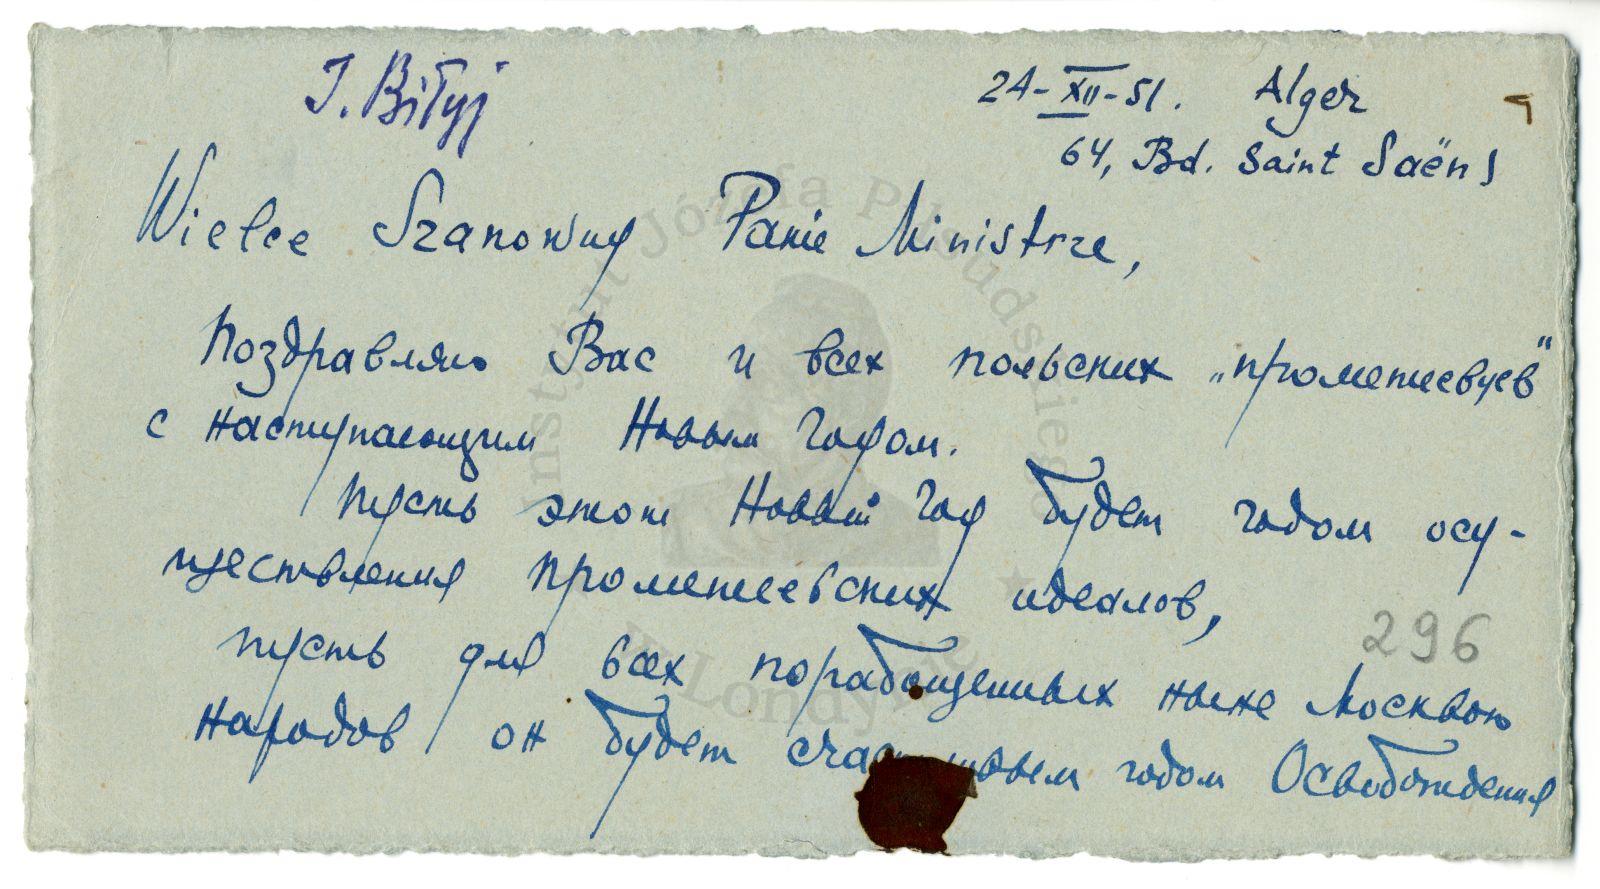 I. Biłyj
24-XII-51. Alger
64, Bd. Saint Saëns
Wielce Szanowny Panie Ministrze,
Поздравляю Вас и всех польских „прометеевцев"
с наступающим Новым Годом.
Пусть этот Новый Год будет годом осу-
ществления прометеевских идеалов,
296
пусть для всех порабощенных ныне Москвою
народов он будет счастливым годом Освобождения
Instytut Józefa Piłsudskiego
w Londynie